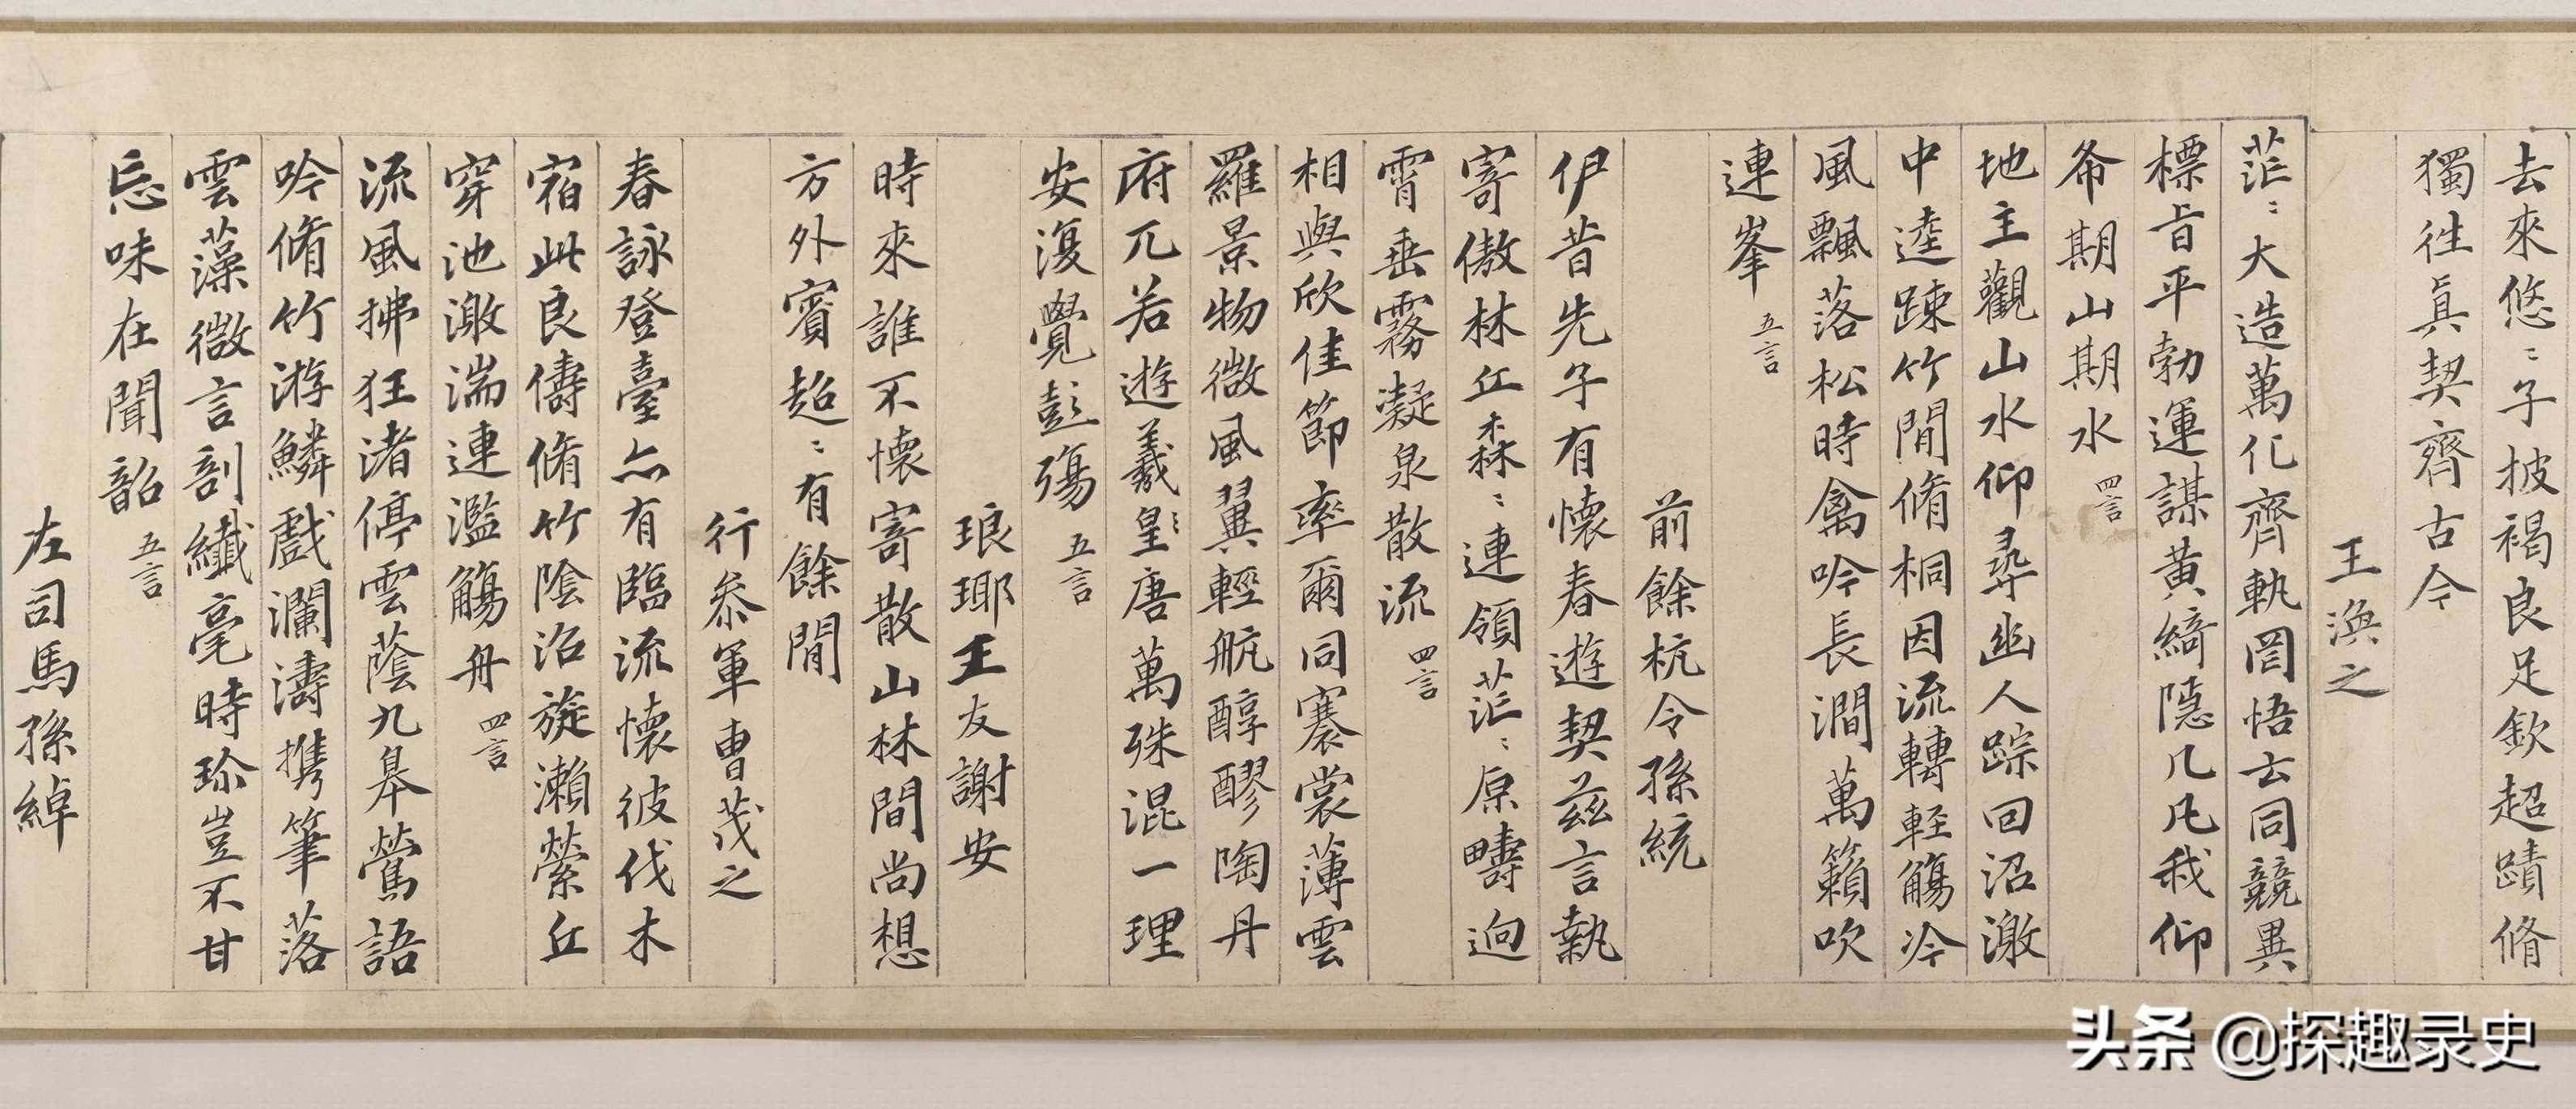 去來悠〻子披褐良足欽超蹟脩
獨往真契齊古今
王渙之
茫〻大造萬化齊軌罔悟玄同競異
標旨平勃運謀黃綺隱几凡我仰
希期山期水 四言
地主觀山水仰尋幽人踪回沼激
中逵踈竹間脩桐因流轉輕觴冷
風飄落松時禽吟長澗萬籟吹
連峯 五言
前餘杭令孫統
伊昔先子有懷春遊契茲言執
寄傲林丘森〻連領茫〻原疇逈
霄垂霧凝泉散流 四言
相與欣佳節率爾同褰裳薄雲
羅景物微風翼輕航醇醪陶丹
府兀若遊羲皇〻唐萬殊混一理
安復覺彭殤 五言
琅瑘王友謝安
時來誰不懷寄散山林間尚想
方外賓超〻有餘閒
行叅軍曹茂之
春詠登臺亦有臨流懷彼伐木
宿此良儔脩竹陰沼旋瀨縈丘
穿池激湍連濫觴舟 四言
流風拂狂渚停雲蔭九皋鶯語
吟脩竹游鱗戲瀾濤攜筆落
雲藻微言剖纖毫時珍豈不甘
忘味在聞韶 五言
左司馬孫綽
头条 @探趣录史